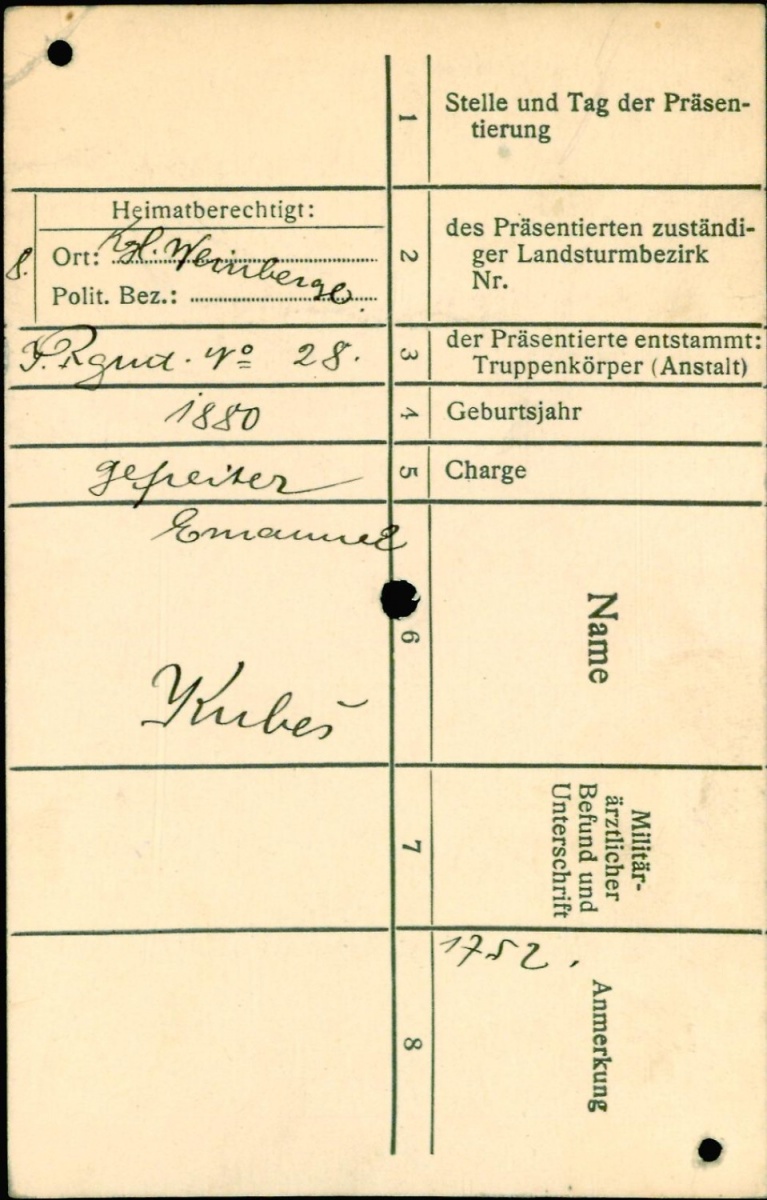 1
Stelle und Tag der Präsen-
tierung
Heimatberechtigt:
8.
Ort: Kgl. Weinberge.
Polit. Bez.:
2
des Präsentierten zuständi-
ger Landsturmbezirk
Nr.
I. Rgmt. No 28.
3
der Präsentierte entstammt:
Truppenkörper (Anstalt)
1880
4
Geburtsjahr
gefreiter
5
Charge
Emanuel
Kubeš
6
Name
7
Militär-
ärztlicher
Befund und
Unterschrift
1752.
8
Anmerkung